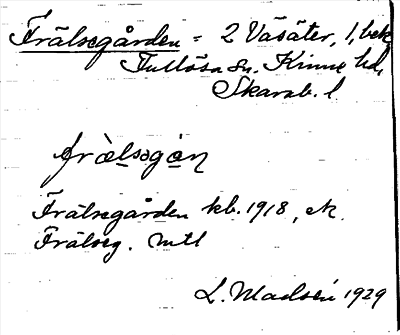 Frälsegården = 2 Väsäter, 1, bek
Fullösa sn. Kinne hd,
Skarab. l.
fràlsəgán
Frälsegården kb. 1918, ck.
Frälseg. mtl
L. Madsén 1929